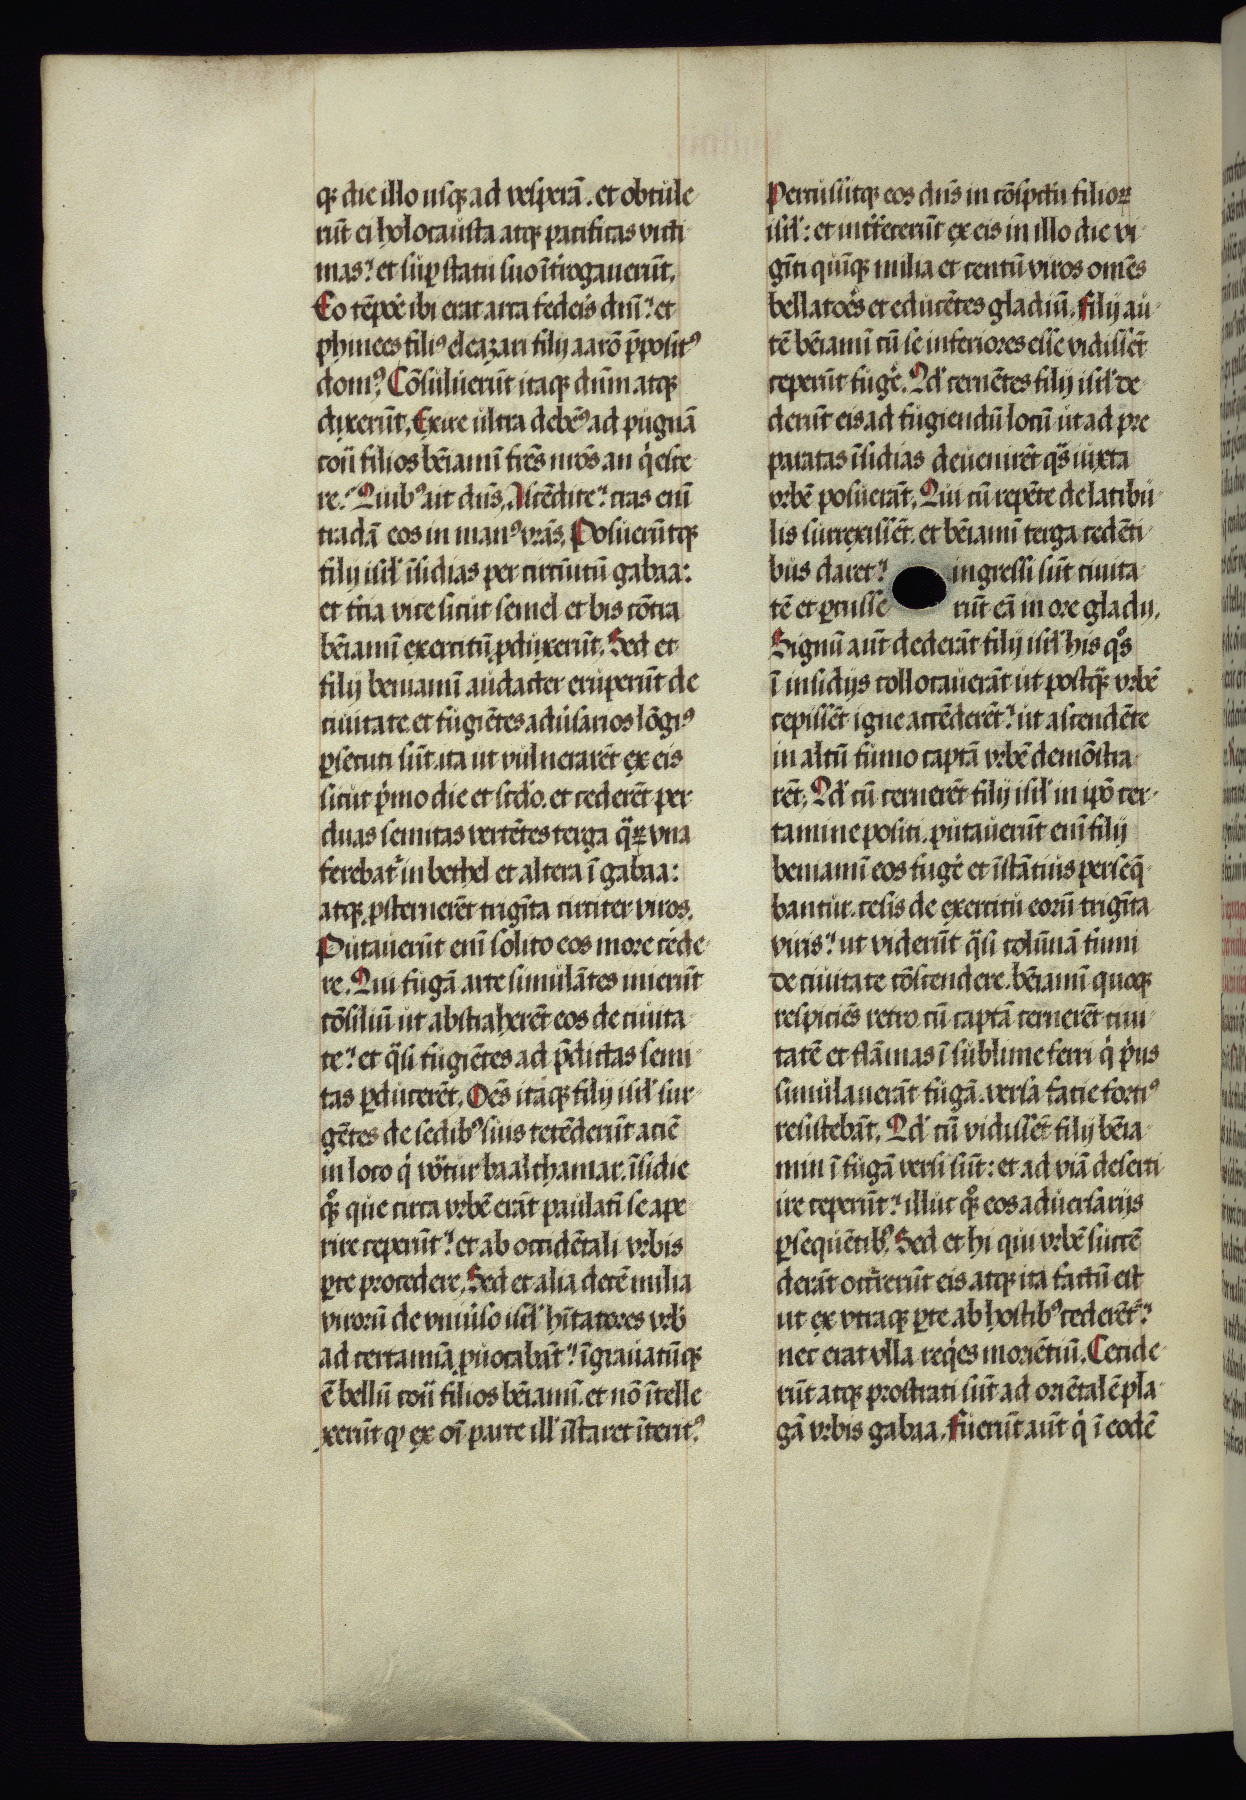 q₃ die illo usq₃ ad vesperā. et obtule
rūt ei holocausta atq₃ pacificas victi
mas? et sup̲ statu suo īt̄rogaverūt.
Eo tēpōe ibi erat arca fedeis dnī? et
phinees filiꝰ eleazari filij aarō p̄positꝰ
domꝰ? Cōsuluerūt itaq₃ dūm atq₃
dixerūt. Exire ultra debēꝰ ad pugnā
coū filios bēiamī frēs nrōs an q̇esce
re? Quibꝰ ait dūs. Ascēdite? cras enī
tradā eos in manꝰ vrās. Posuerūtq₃
filij isrl' īsidias per circūitū gabaa:
et t̄cia vice sicut semel et bis cōtra
bēiamī exercitū ꝓduxerūt. Sed et
filij beniamī audacter eruperūt de
civitate et fugiētes adūsarios lōgiꝰ
ꝑsecuti sūt. ita ut vulnerarēt ex eis
sicut p̍mo die et scdo. et cederēt per
duas semitas vertētes terga q̄ꝝ una
ferebat᷑ in bethel et altera ī gabaa:
atq₃ ꝓsternerēt trigīta circiter viros.
Putaverūt enī solito eos more cede
re. Qui fugā arte simulātes inierūt
cōsiliū ut abstraherēt eos de civita
te? et q̄si fugiētes ad p̄dictas semi
tas ꝑducerēt. Oēs itaq₃ filij isrl' sur
gētes de sedibꝰ suis tetēderūt aciē
in loco q̍ vōtur baalthamar. īsidie
qͦ₃ que circa vrbē erāt paulatī se ape
rire ceperūt? et ab occidētali vrbis
ꝑte procedere. Sed et alia decē milia
virorū de univ̄so isrl' hītatores vrb'
ad certamīa ꝓvocabāt? īgravatūq₃
ē bellū coū filios bēiamī. et nō ītelle
xerūt ꝙ ex oī parte ill' īstaret īteritꝰ
Percussitq₃ eos dūs in cōspctū filioꝝ
isrl': et int̄fecerūt ex eis in illo die vi
gīti quīq₃ milia et centū viros omēs
bellatoēs et educētes gladiū. Filij au
tē bēiamī cū se inferiores esse vidissēt
ceperūt fugē. Qd' cernētes filij isrl' de
derūt eis ad fugiendū locū ut ad pre
paratas īsidias devenirēt q̄s iuxta
vrbē posuerāt. Qui cū repēte de latibu
lis surrexissēt. et bēiamī terga cedēti
bus daret? ingressi sūt civita
tē et ꝑcusse rūt eā in ore gladij.
Signū aūt dederāt filij isrl' his qͦs
ī insidijs collocaverāt ut postq̄₃ vrbē
cepissēt igne accēderēt? ut ascendēte
in altū fumo captā vrbē demōstra
rēt. Qd' cū cernerēt filij isrl' in ipō cer
tamine positi. putaverūt enī filij
beniamī eos fugē et īstātius perseq̄
bantur. cesis de exercitu eorū trigīta
viris? ut viderūt q̄si colūnā fumi
de civitate cōscendere. bēiamī quoq₃
respiciēs retro. cū captā cerneret civi
tatē et flāmas ī sublime ferri q̍ p̍us
simulaverāt fugā. versa facie fortiꝰ
resistebāt. Qd' cū vidissēt filij bēia
min ī fugā versi sūt: et ad viā deserti
ire ceperūt? illuc qͦ₃ eos adversarijs
ꝑsequētibꝰ. Sed et hi qui vrbē succē
derāt occ̄rerūt eis atq₃ ita factū est
ut ex utraq₃ ꝑte ab hostibꝰ cederēt᷑?
nec erat ulla req̍es moriētiū. Cecide
rūt atq₃ prostrati sūt ad oriētalē pla
gā vrbis gabaa. Fuerūt aūt q̍ ī eodē